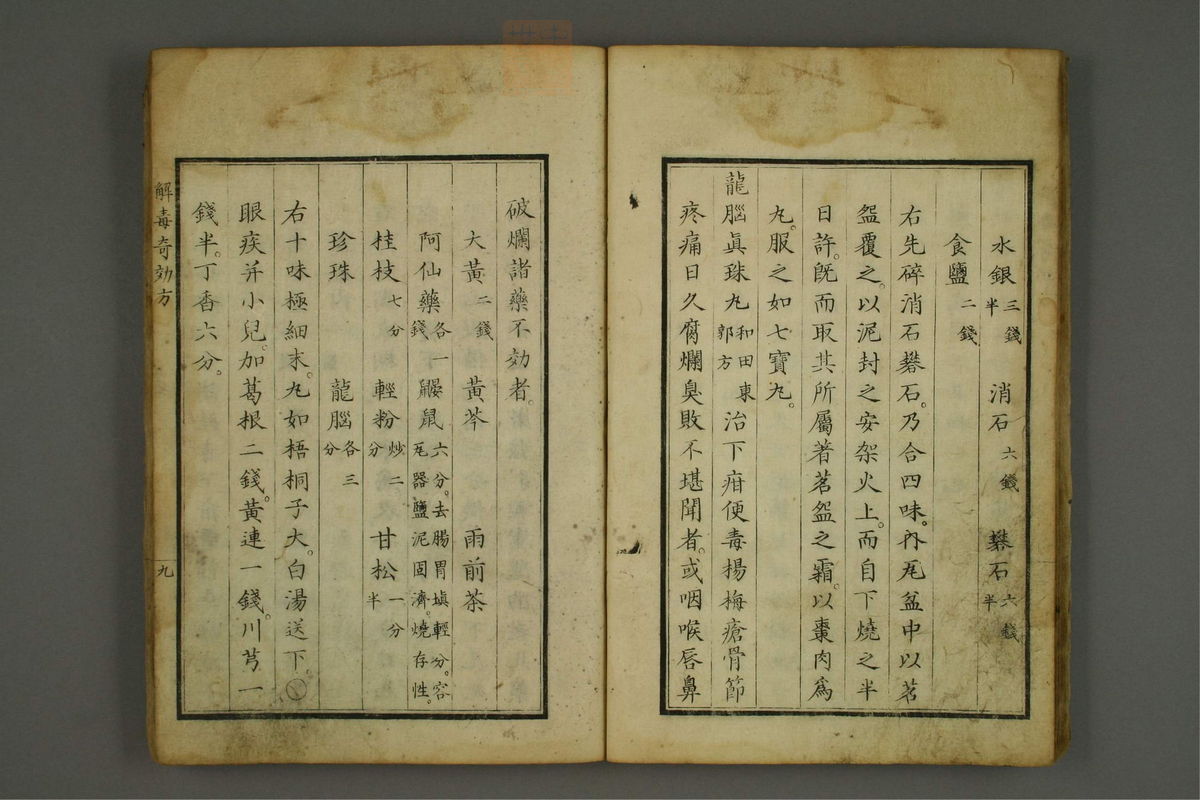 水銀三錢半 消石六錢 礬石六錢半
食鹽二錢
右先碎消石礬石。乃合四味。內瓦盆中以茗
盌覆之。以泥封之安架火上。而自下燒之半
日許。既而取其所屬著茗盌之霜。以棗肉為
丸。服之如七寶丸。
龍腦眞珠丸和田東郭方治下疳便毒楊梅瘡骨節
疼痛日久腐爛臭敗不堪聞者。或咽喉唇鼻
破爛諸藥不効者。
大黃二錢 黃芩 雨前茶
阿仙藥各一錢 鼴鼠六分。去腸胃塡輕分。容瓦器鹽泥固濟。燒存性。
桂枝七分 輕粉炒二分 甘松一分半
珍珠 龍腦各三分
右十味極細末。丸如梧桐子大。白湯送下。
眼疾并小兒。加葛根二錢。黃連一錢。川芎一
錢半。丁香六分。
解毒奇効方
九